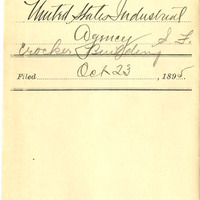 United States Industrial
Agency S. F.
Crocker Building
Filed Oct 23, 1895.